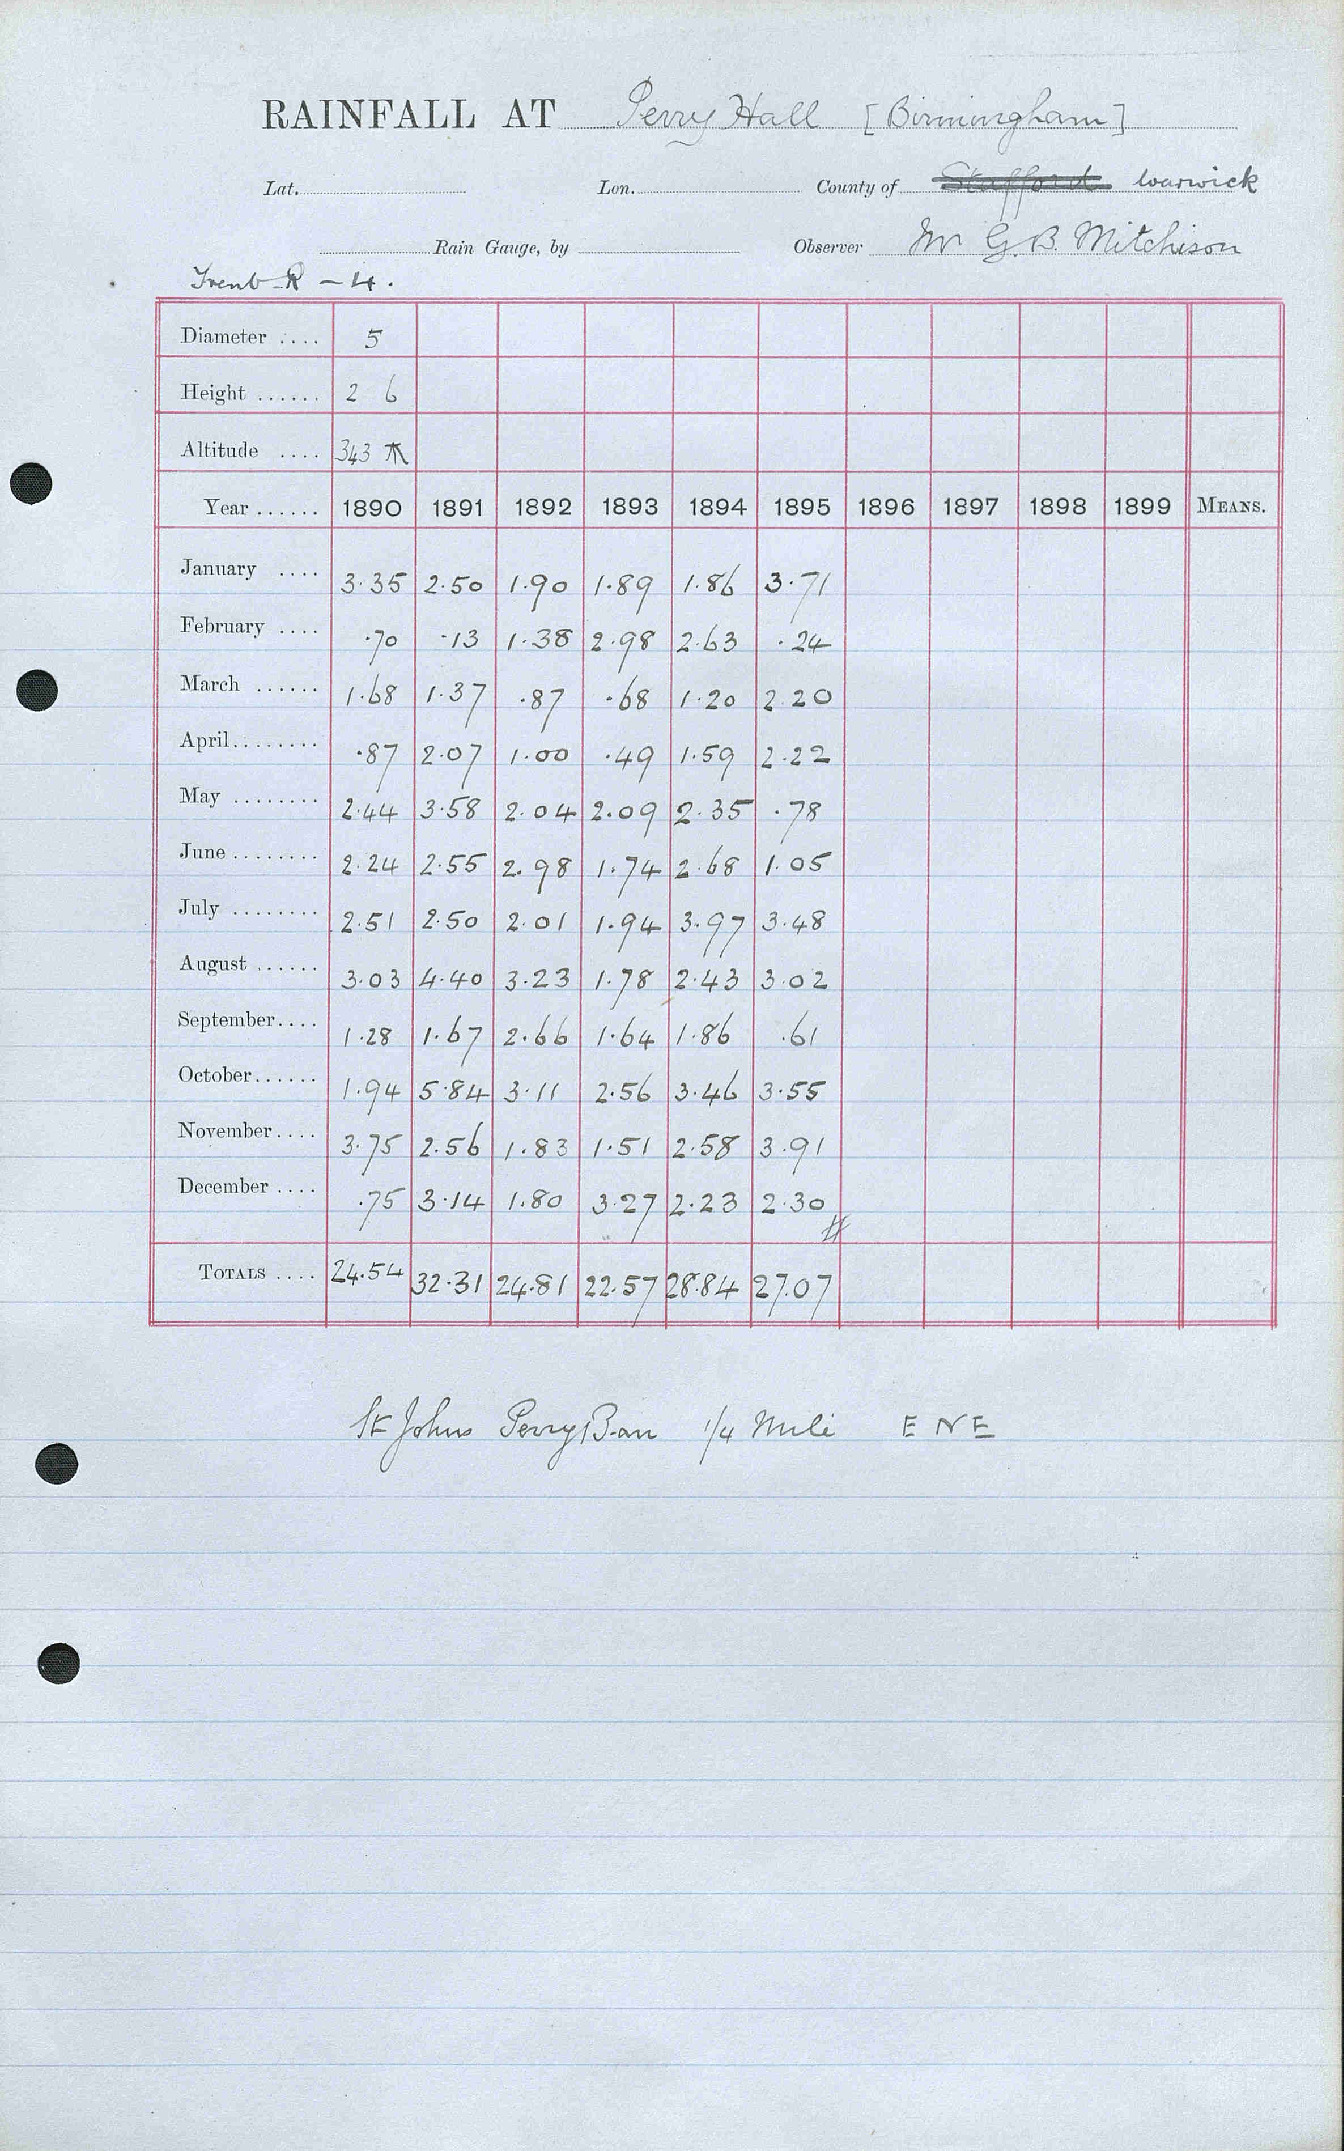 RAINFALL AT Perry Hall [Birmingham]
Lat. Lon. County of Stafford Warwick
Rain Gauge, by Observer Mr G.B. Mitchison
Trent R - 4.
Diameter .... 5
Height ...... 2 6
Altitude .... 343
Year ...... 1890 1891 1892 1893 1894 1895 1896 1897 1898 1899 MEANS.
January .... 3.35 2.50 1.90 1.89 1.86 3.71
February .... .70 .13 1.38 2.98 2.63 .24
March ...... 1.68 1.37 .87 .68 1.20 2.20
April........ .87 2.07 1.00 .49 1.59 2.22
May ........ 2.44 3.58 2.04 2.09 2.35 .78
June ........ 2.24 2.55 2.98 1.74 2.68 1.05
July ........ 2.51 2.50 2.01 1.94 3.97 3.48
August ...... 3.03 4.40 3.23 1.78 2.43 3.02
September.... 1.28 1.67 2.66 1.64 1.86 .61
October...... 1.94 5.84 3.11 2.56 3.46 3.55
November.... 3.75 2.56 1.83 1.51 2.58 3.91
December .... .75 3.14 1.80 3.27 2.23 2.30
TOTALS .... 24.54 32.31 24.81 22.57 28.84 27.07
St Johns Perry Barr 1/4 Mile E N E